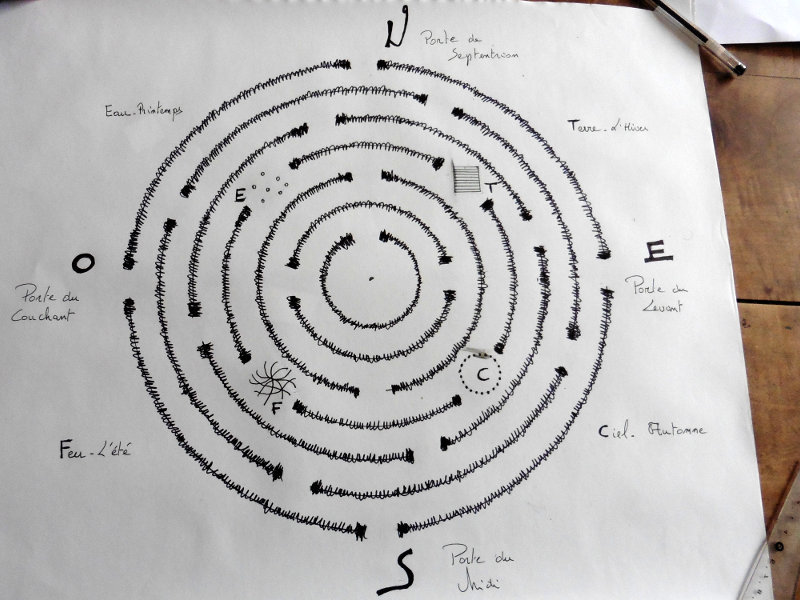 N
Porte de
Septentrion
Eau-Printemps
Terre-L'Hiver
E
T
O
E
Porte du
Couchant
Porte du
Levant
C
F
Feu-L'été
Ciel-Automne
S
Porte du
Midi